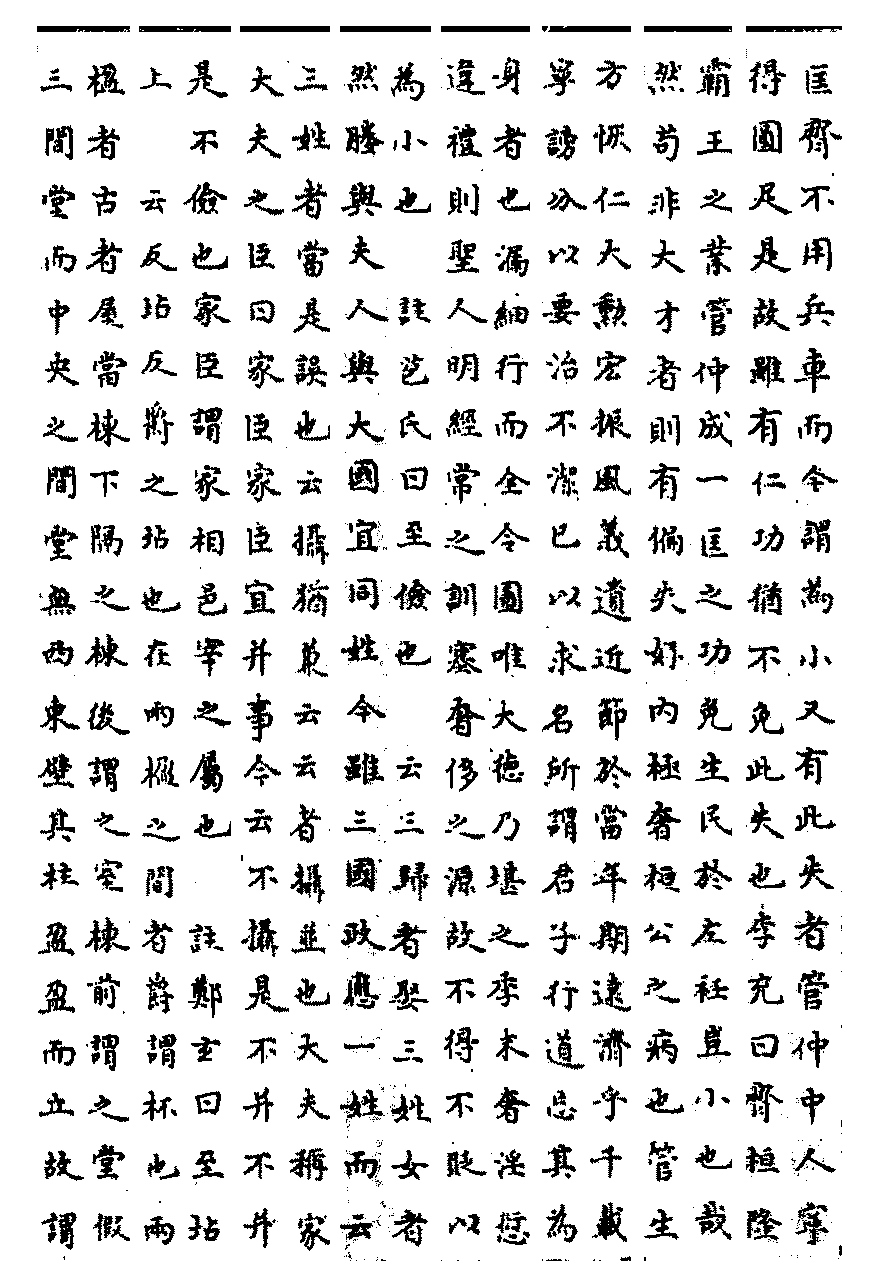 匡齊不用兵車而令謂為小又有此失者管仲中人寧
得圓足是故雖有仁功猶不免此失也李充曰齊桓隆
霸王之業管仲成一匡之功免生民於左衽豈小也哉
然苟非大才者則有偏失好內極奢桓公之病也管生
方恢仁大勳宏振風義遺近節於當年期遠濟乎千載
寧謗分以要治不潔己以求名所謂君子行道忘其為
身者也漏細行而全令圖唯大德乃堪之季末奢淫愆
違禮則聖人明經常之訓塞奢侈之源故不得不貶以
為小也 註苞氏曰至儉也 云三歸者娶三姓女者
然媵與夫人與大國宜同姓今雖三國政應一姓而云
三姓者當是誤也云攝猶兼云云者攝並也大夫稱家
大夫之臣曰家臣家臣宜并事今云不攝是不并不并
是不儉也家臣謂家相邑宰之屬也 註鄭玄曰至坫
上 云反坫反爵之坫也在兩楹之間者爵謂杯也兩
楹者古者屋當棟下隔之棟後謂之室棟前謂之堂假
三間堂而中央之間堂無西東壁其柱盈盈而立故謂